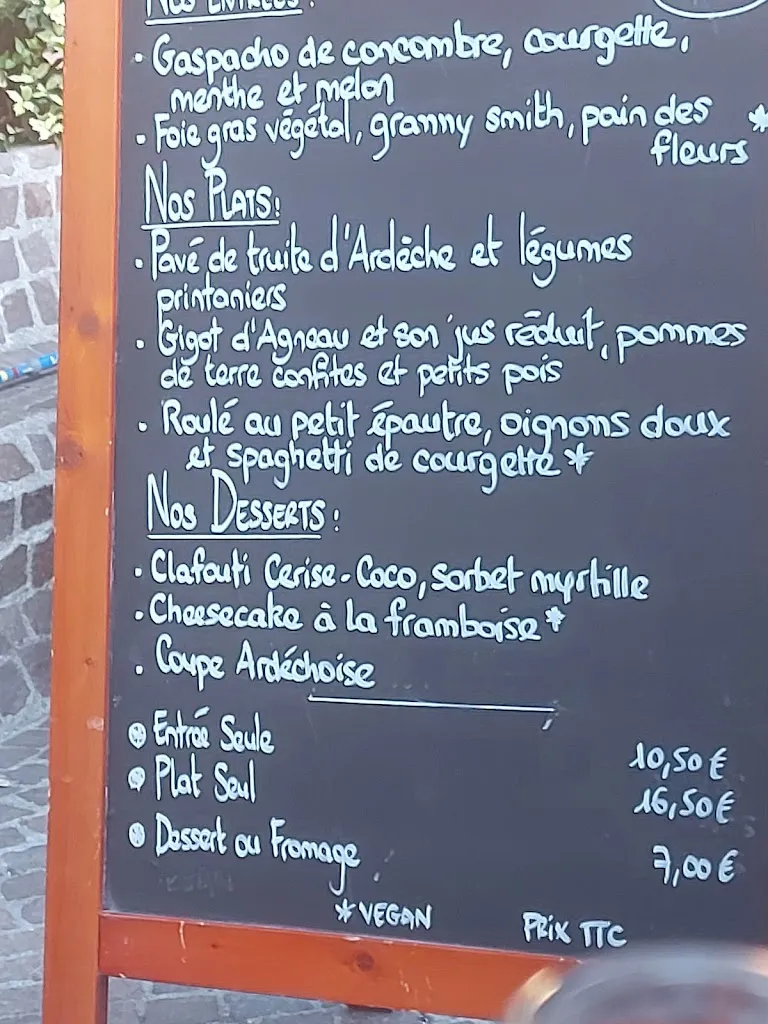 Nos Entrées:
• Gaspacho de concombre, courgette,
menthe et melon
• Foie gras végétal, granny smith, pain des *
fleurs
Nos Plats:
• Pavé de truite d'Ardèche et légumes
printaniers
• Gigot d'Agneau et son jus réduit, pommes
de terre confites et petits pois
• Roulé au petit épautre, oignons doux
et spaghetti de courgette *
Nos Desserts:
• Clafouti Cerise-Coco, sorbet myrtille
• Cheesecake à la framboise *
• Coupe Ardéchoise
Entrée Seule 10,50 €
Plat Seul 16,50 €
Dessert ou Fromage 7,00 €
* VEGAN PRIX TTC